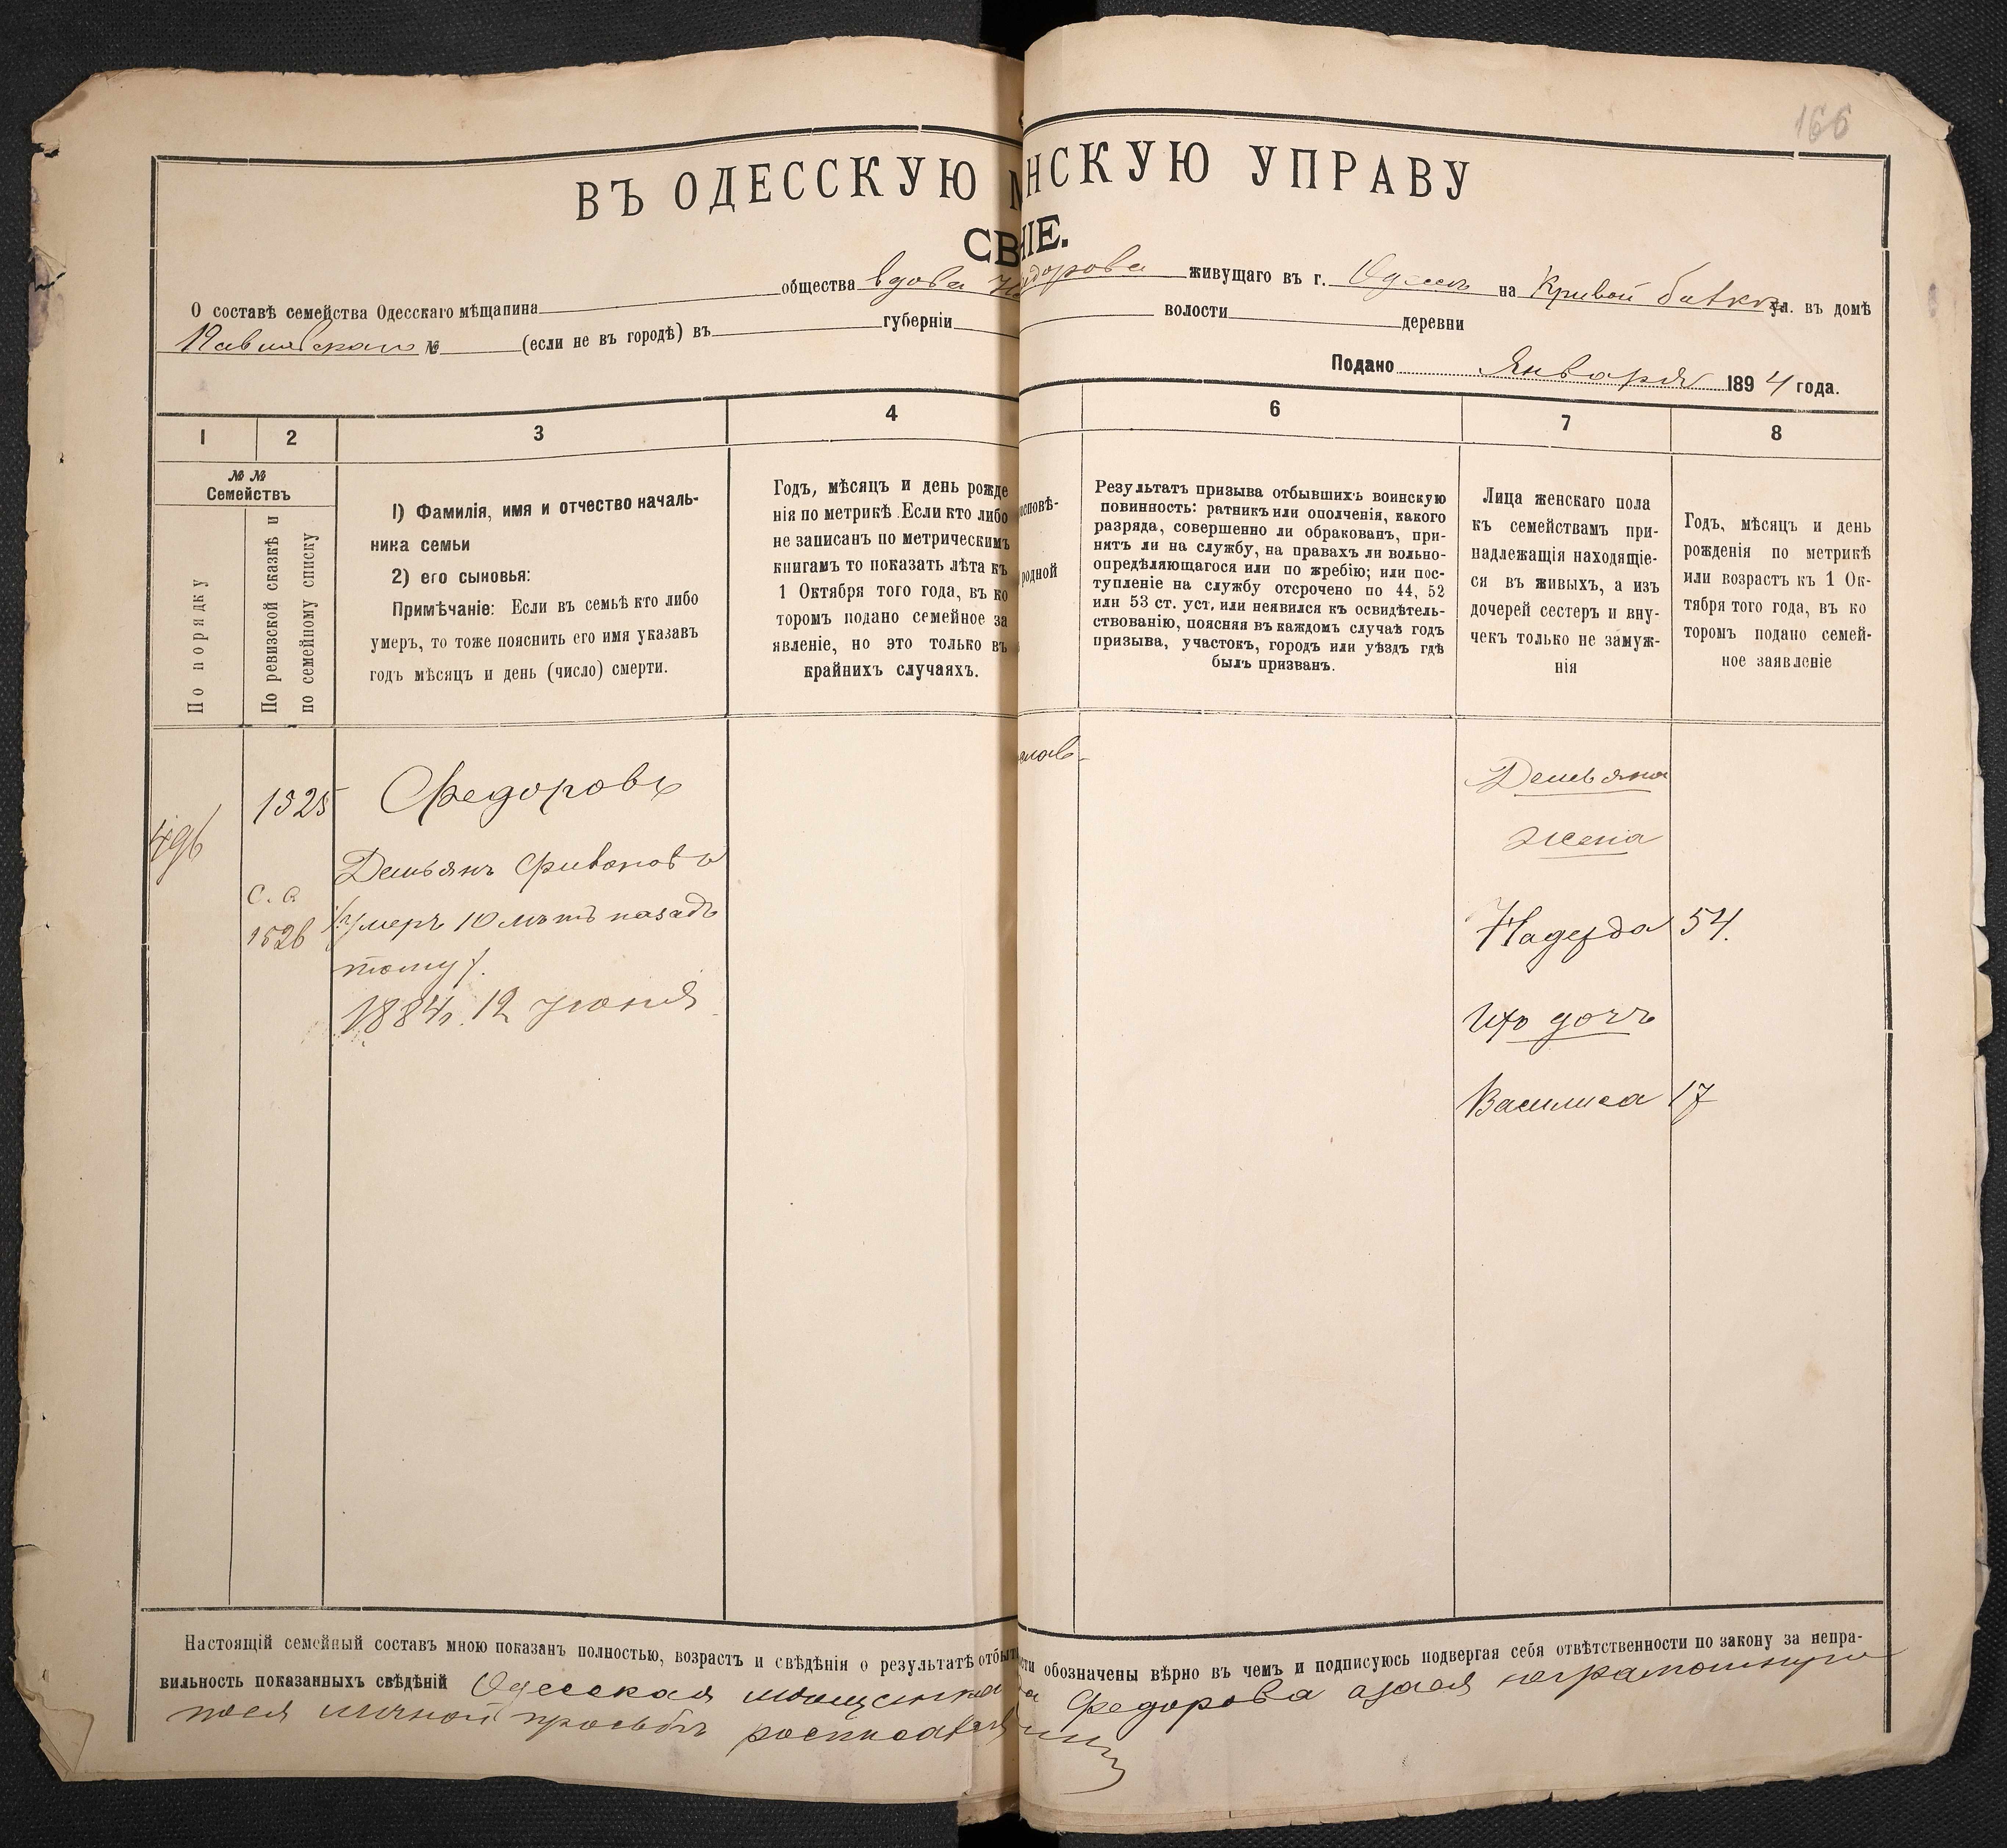 166
ВЪ ОДЕССКУЮ НСКУЮ УПРАВУ
СВ НІЕ.
О составѣ семейства Одесскаго мѣщанина общества вдова дорова живущаго въ г. Одессѣ на Кривой балкѣ ул. въ домѣ
№ (если не въ городѣ) въ губерніи волости деревни
Подано Января 1894 года.
1 2 3 4 6 7 8
№ №
Семействъ
По порядку
По ревизской сказкѣ и
по семейному списку
1) Фамилія, имя и отчество началь-
ника семьи
2) его сыновья:
Примѣчаніе: Если въ семьѣ кто либо
умеръ, то тоже пояснить его имя указавъ
годъ мѣсяцъ и день (число) смерти.
Годъ, мѣсяцъ и день рожде
нія по метрикѣ Если кто либо
не записанъ по метрическимъ
книгамъ то показать лѣта къ
1 Октября того года, въ ко
торомъ подано семейное за
явленіе, но это только въ
крайнихъ случаяхъ.
исповѣ-
родной
Результатъ призыва отбывшихъ воинскую
повинность: ратникъ или ополченія, какого
разряда, совершенно ли обракованъ, при-
нятъ ли на службу, на правахъ ли вольно-
опредѣляющагося или по жребію; или пос-
тупленіе на службу отсрочено по 44, 52
или 53 ст. уст, или неявился къ освидѣтель-
ствованію, поясняя въ каждомъ случаѣ годъ
призыва, участокъ, городъ или уѣздъ гдѣ
былъ призванъ.
Лица женскаго пола
къ семействамъ при-
надлежащія находящіе-
ся въ живыхъ, а изъ
дочерей сестеръ и вну-
чекъ только не замуж-
нія
Годъ, мѣсяцъ и день
рожденія по метрикѣ
или возрастъ къ 1 Ок-
тября того года, въ ко
торомъ подано семей-
ное заявленіе
496
1525
с. а
1526
Федоровъ
Демьянъ
умеръ 10 лѣтъ назадъ
тому).
1884г. 12 Іюня
слав-
Демьяна
жена
Надежда 54.
Ихъ дочь
Василиса 17
Настоящій семейный составъ мною показанъ полностью, возрастъ и свѣдѣнія о результатѣ отбыт сти обозначены вѣрно въ чемъ и подписуюсь подвергая себя отвѣтственности по закону за непра-
вильность показанныхъ свѣдѣній Одесская мѣщанка Федорова неграмотную
личной просьбѣ